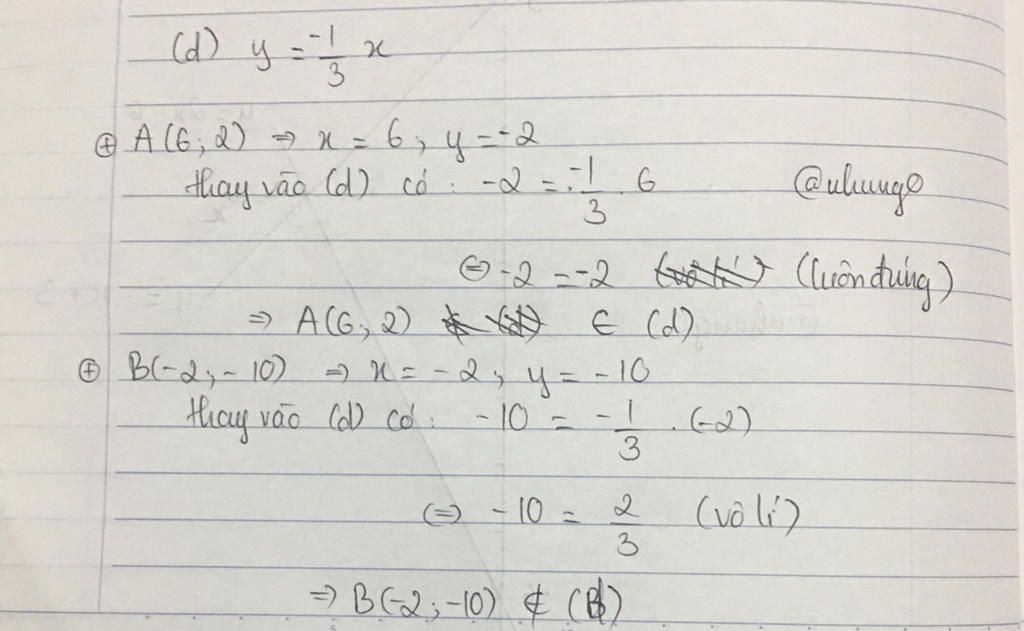 (d) y = -1/3 x
⊕ A(6; 2) ⇒ x = 6; y = -2
thay vào (d) có: -2 = -1/3 . 6 @uhung0
⇔ -2 = -2 (luôn đúng)
⇒ A(6; 2) ∈ (d)
⊕ B(-2; -10) ⇒ x = -2; y = -10
thay vào (d) có: -10 = -1/3 . (-2)
⇔ -10 = 2/3 (vô lí)
⇒ B(-2; -10) ∉ (d)